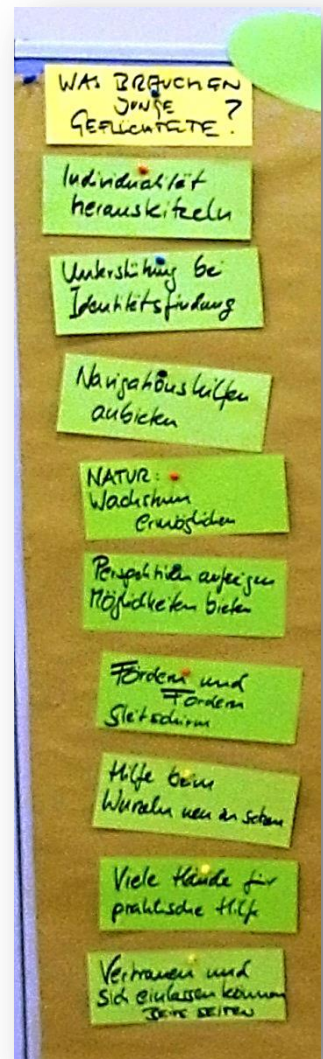 WAS BRAUCHEN
JUNGE
GEFLÜCHTETE?
Individualität
herauskitzeln
Unterstützung bei
Identitätsfindung
Navigationshilfen
anbieten
NATUR:
Wachstum
ermöglichen
Perspektiven aufzeigen
Möglichkeiten bieten
Fördern und
Fordern
Gleitschirm
Hilfe beim
Wurzeln neu
Viele Hände für
praktische Hilfe
Vertrauen und
sich einlassen können
SEITEN